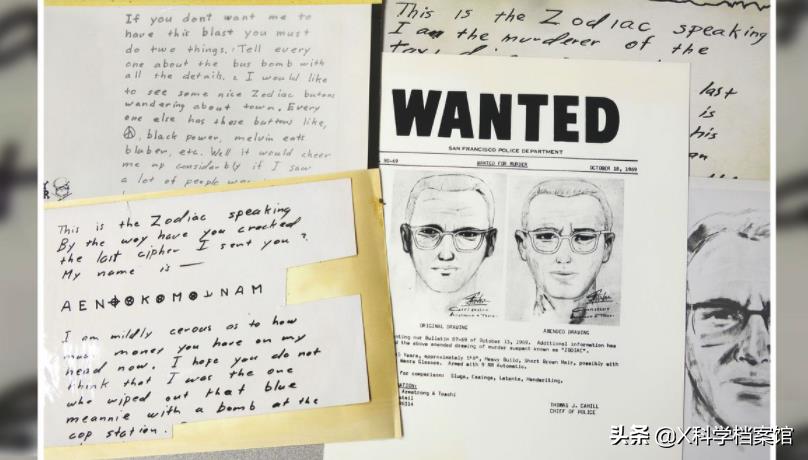 If you dont want me to
have this blast you must
do two things. 1 Tell every
one about the bus bomb with
all the details. 2 I would like
to see some nice Zodiac butons
wandering about town. Every
one else has these buttons like,
black power, melvin eats
bluber, etc. Well it would cheer
me up considerbly if I saw
a lot of people
This is the Zodiac speaking
I am the murderer of the
last
is
his
This is the Zodiac speaking
By the way have you cracked
the last cipher I sent you?
My name is —
A E N ⌖ ⊗ K ⊗ M ⊗ ⅃ N A M
I am mildly cerous as to how
much money you have on my
head now. I hope you do not
think that I was the one
who wiped out that blue
meannie with a bomb at the
cop station.
WANTED
SAN FRANCISCO POLICE DEPARTMENT
90-69 WANTED FOR MURDER OCTOBER 18, 1969
ORIGINAL DRAWING AMENDED DRAWING
our Bulletin 87-69 of October 13, 1969. Additional information has
the above amended drawing of murder suspect known as "ZODIAC".
Years, approximately Heavy Build, Short Brown Hair, possibly with
Glasses. Armed with 9 MM Automatic.
for comparison: Slugs, Casings, Latents, Handwriting.
Armstrong & Toschi
THOMAS J. CAHILL
CHIEF OF POLICE
头条 @X科学档案馆